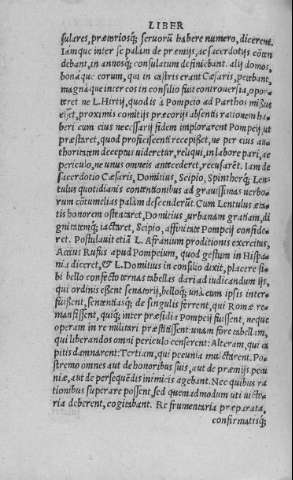 LIBER
sulares, prætoriosq; seruorũ habere numero, dicerent.
Iamque inter se palàm de præmijs, ac sacerdotijs cõten
debant, in annosq; consulatum definiebant. alij domos,
bonáque eorum, qui in castris erant Cæsaris, petebant,
magnáque inter eos in consilio fuit controuersia, opor-
teret ne L. Hirtij, quod is à Pompeio ad Parthos missus
esset, proximis comitijs prætorijs absentis rationem ha-
beri cum eius necessarij fidem implorarent Pompeij ut
præstaret, quod proficiscenti recepisset, ne per eius au-
thoritatem deceptus uideretur, reliqui, in labore pari, ac
periculo, ne unus omneis antecederet, recusarẽt. Iam de
sacerdotio Cæsaris, Domitius, Scipio, Spintherq́; Len-
tulus quotidianis contentionibus ad grauissimas uerbo-
rum cõtumelias palàm descenderũt. Cum Lentulus æta-
tis honorem ostẽtaret, Domitius, urbanam gratiam, di-
gnitatemq́; iactaret, Scipio, affinitate Pompeij confide-
ret. Postulauit etiã L. Afranium proditionis exercitus,
Actius Rufus apud Pompeium, quod gestum in Hispa-
nia diceret, & L. Domitius in consilio dixit, placere si-
bi bello confecto ternas tabellas dari ad iudicandum ijs,
qui ordinis essent senatorij, belloq́; unà cum ipsis inter-
fuissent, sententiasq́; de singulis ferrent, qui Romæ re-
mansissent, quiq́; inter præsidia Pompeij fuissent, neque
operam in re militari præstitissent: unam fore tabellam,
qui liberandos omni periculo censerent: Alteram, qui ca
pitis damnarent: Tertiam, qui pecunia mulctarent. Po-
stremo omnes aut de honoribus suis, aut de præmijs pecu
niæ, aut de persequẽdis inimicis agebant. Nec quibus ra
tionibus superare possent, sed quemadmodum uti uicto
ria deberent, cogitabant. Re frumentaria præparata,
confirmatisq́;